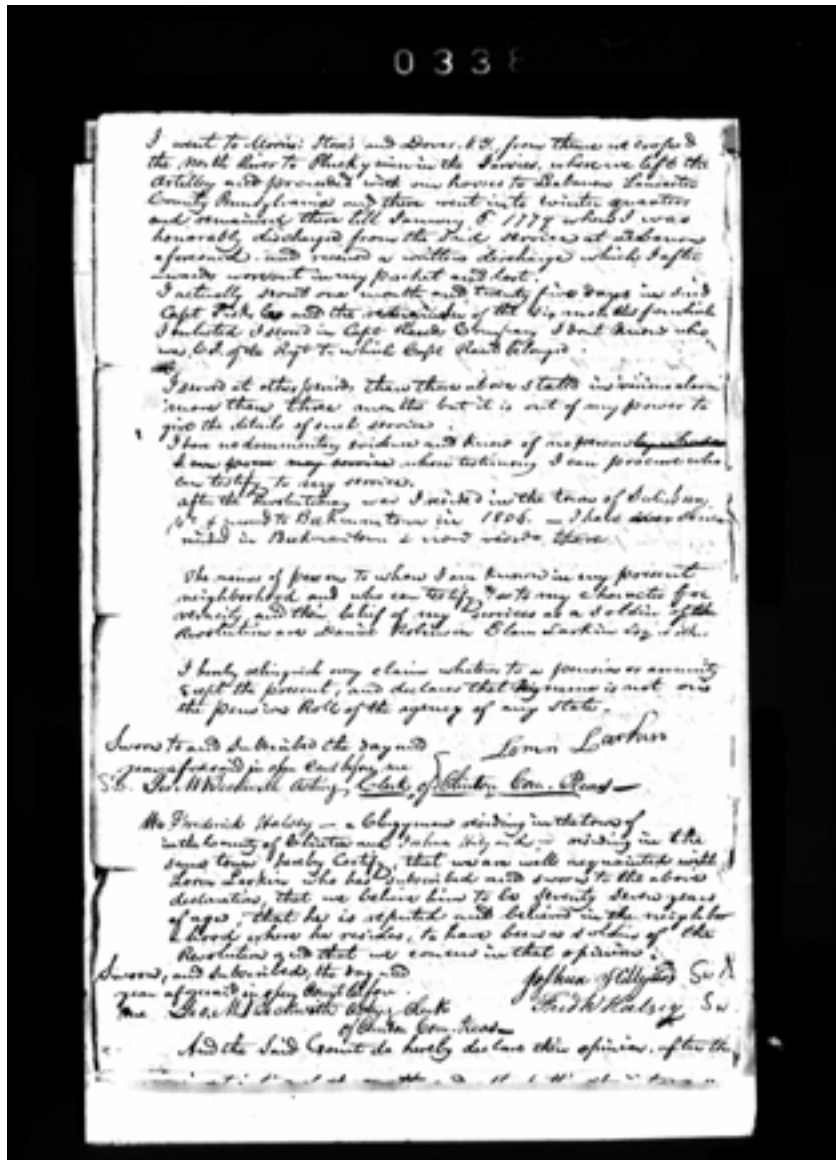 0338
I went to Morris Town and Dover N.J. from thence we crossed
the North River to Pluckymin in the Jerseys, where we left the
Artillery and proceeded with our horses to Lebanon Lancaster
County Pennsylvania and there went into winter quarters
and remained there till January 5 1779 when I was
honorably discharged from the said service at Lebanon
aforesaid. and received a written discharge which I after
wards wore out in my pocket and lost.
I actually served one month and twenty five days in said
Capt Fisks Co and the remainder of the six months for which
I enlisted I served in Capt Company I dont know who
was Col. of the Regt to which Capt belonged.
I served at other periods than those above stated in
more than three months but it is out of my power to
give the details of such service
I have no documentary evidence and know of no person
whose testimony I can procure who
can testify to my service.
After the Revolutionary war I resided in the town of Salisbury
moved to Beekmantown in 1806. – I have ever since
resided in Beekmantown & now reside there
The names of persons to whom I am known in my present
neighborhood and who can testify as to my character for
veracity and their belief of my services as a soldier of the
Revolution are Daniel Robinson Elam Larkin Esq
I hereby relinquish every claim whatever to a pension or annuity
except the present, and declares that my name is not on
the pension Roll of the agency of any state.
Sworn to and subscribed the day and
year aforesaid in open Court before me
Loren Larkin
Acting Clerk of Clinton Com. Pleas –
We Fredrick Halsey – a Clergyman residing in the town of
in the County of Clinton and Joshua Hillyard – residing in the
same town hereby Certify, that we are well acquainted with
Loren Larkin who has subscribed and sworn to the above
declaration, that we believe him to be seventy seven years
of age, that he is reputed and believed in the neighbor
hood where he resides, to have been a soldier of the
Revolution and that we concur in that opinion.
Sworn, and subscribed, the day and
year aforesaid in open Court before
me Acting Clerk
of Clinton Com. Pleas –
Joshua Hillyard
Fredk Halsey
And the said Court do hereby declare their opinion. after the